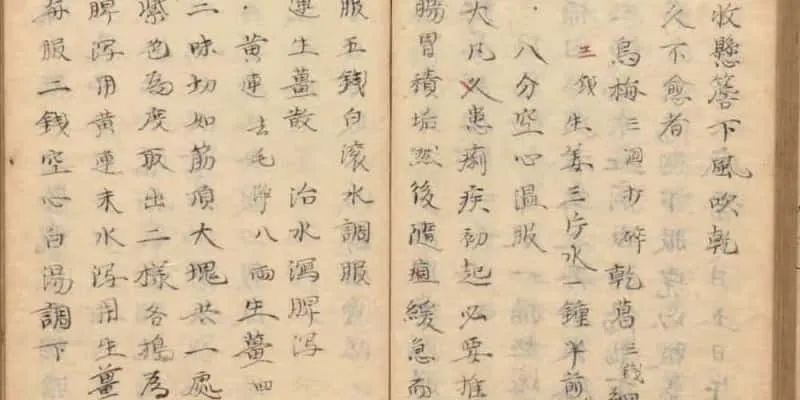 收懸簷下風吹乾
久不愈者
烏梅三個打碎乾葛三錢細
三錢生姜三片水一鍾半前
八分空心温服
大凡人患痢疾初起必要推
腸胃積垢然後隨症緩急而
服五錢白滾水調服
連生薑散 治水瀉脾瀉
黄連去毛淨八兩生薑四
二味切如筋頂大塊共一處
紫色為度取出二樣各搗為
脾瀉用黄連末水瀉用生薑
每服二錢空心白湯調下